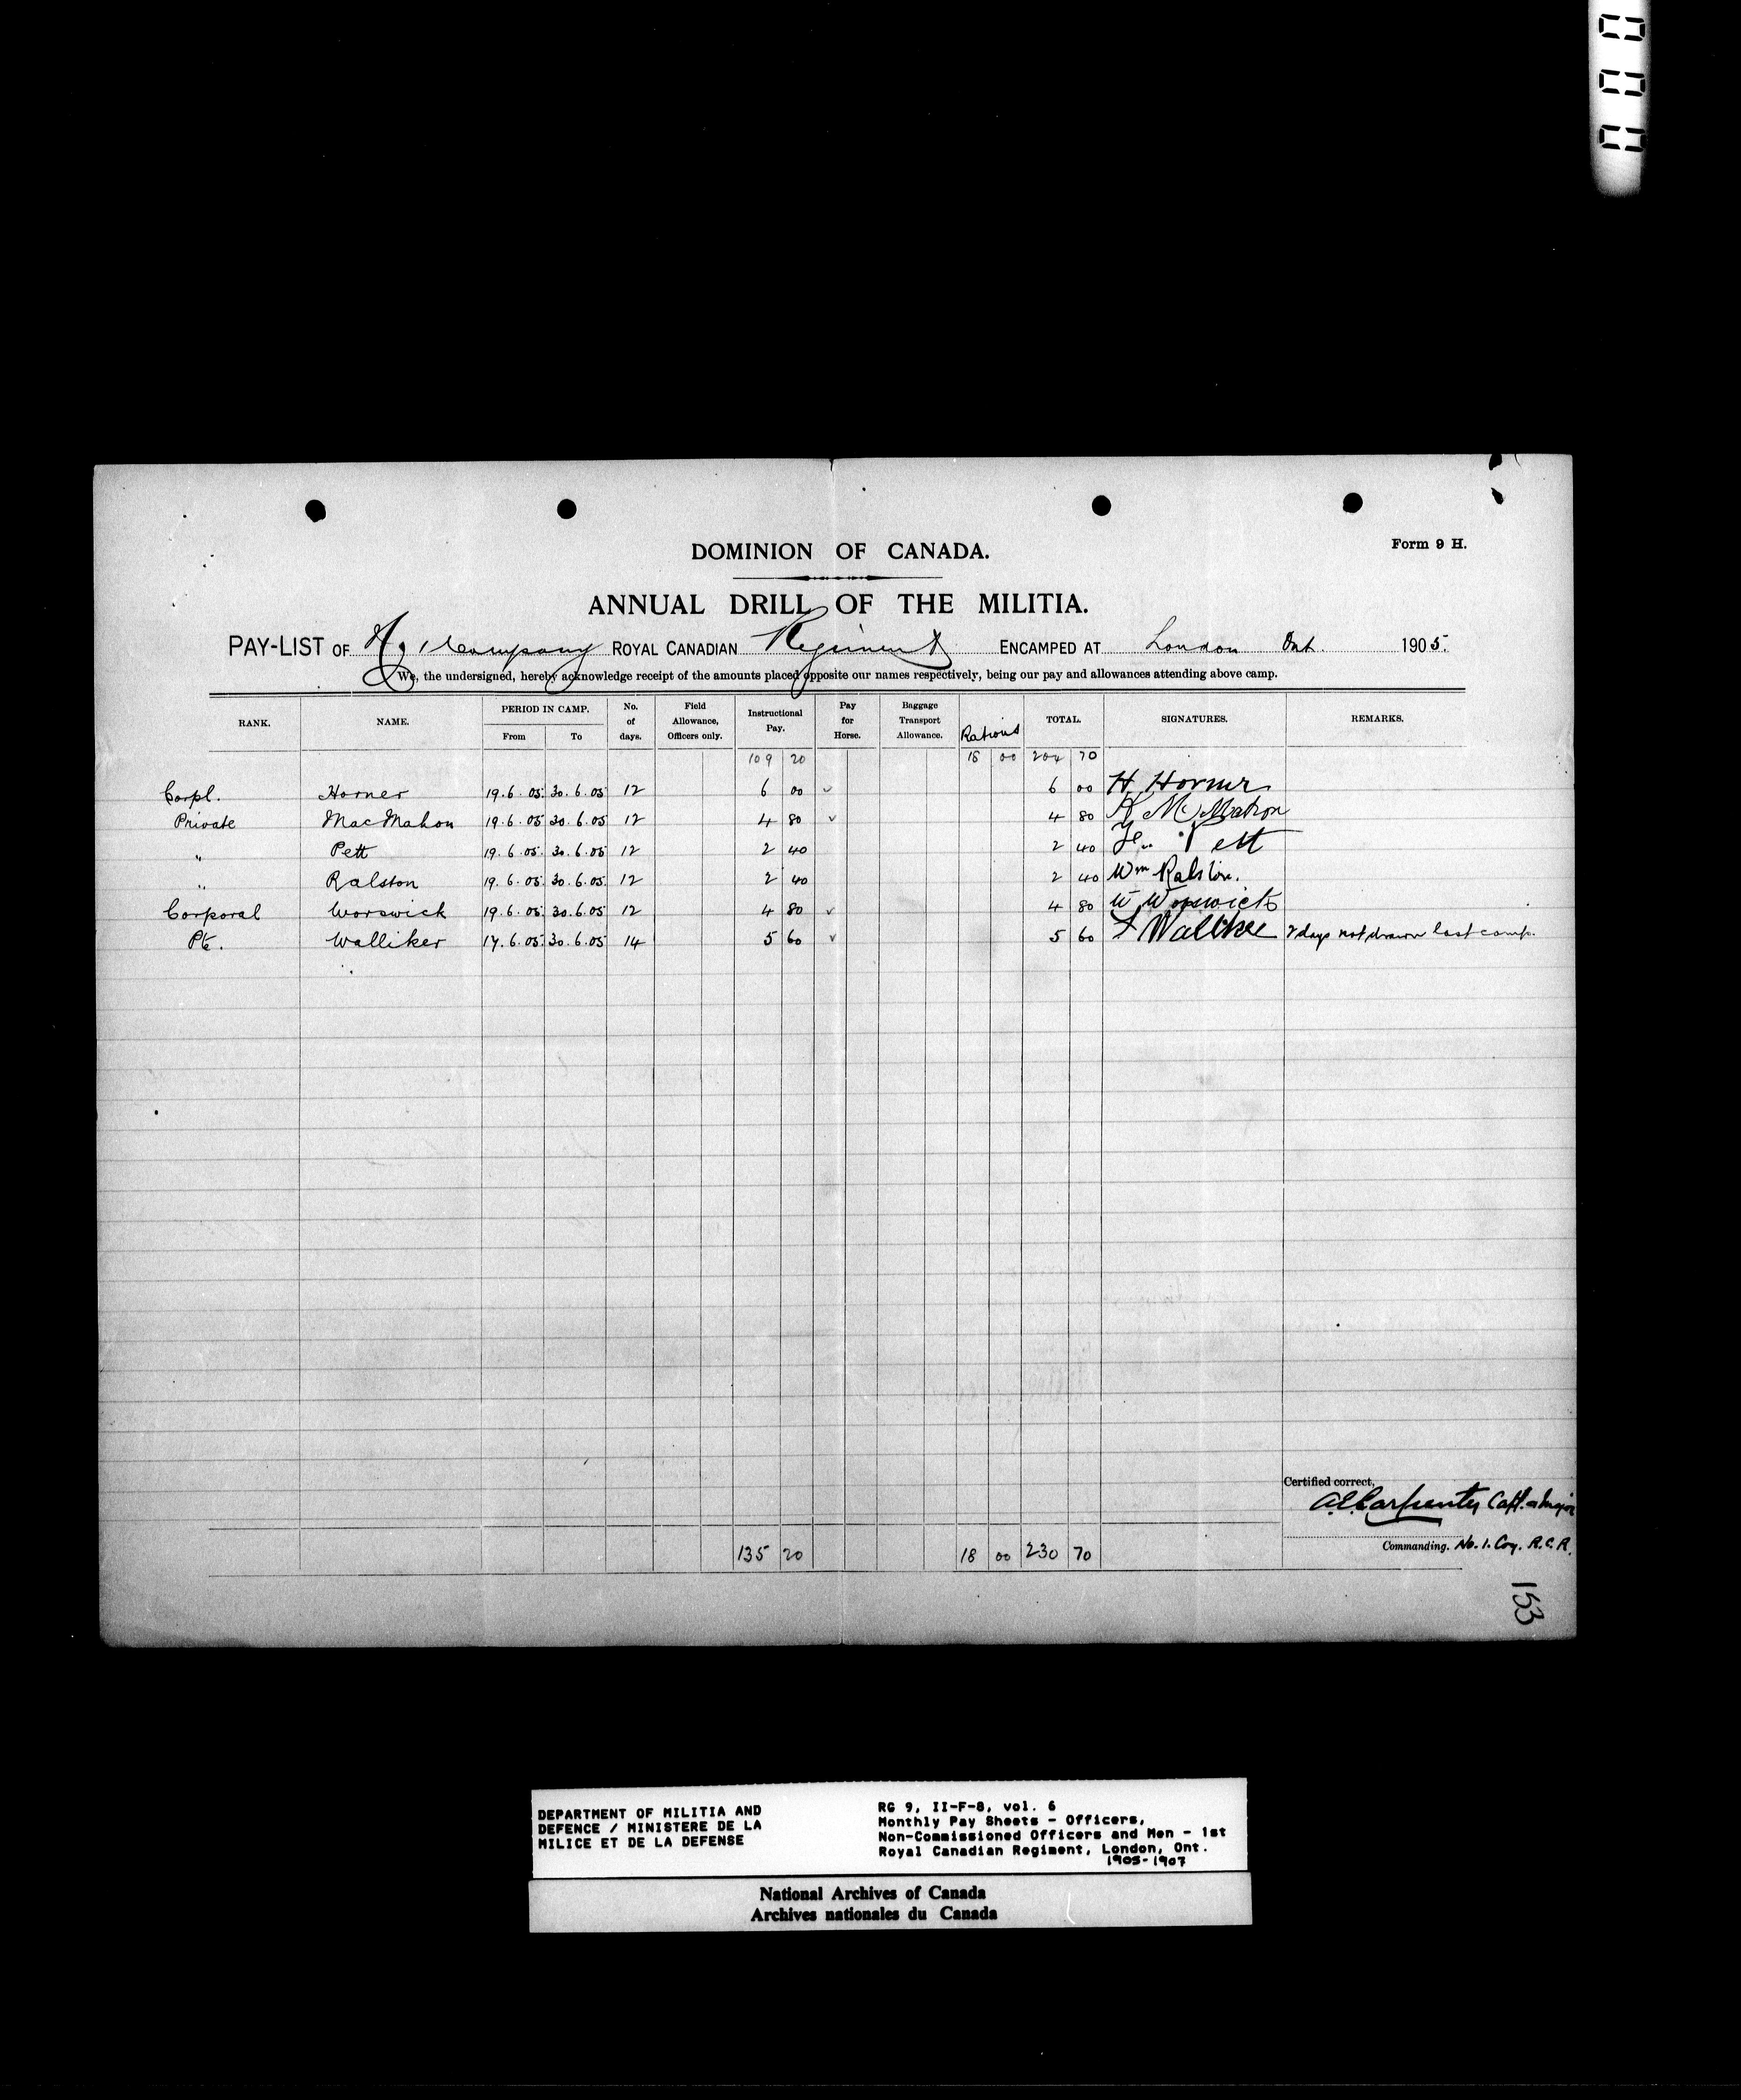 DOMINION OF CANADA.
Form 9 H.
ANNUAL DRILL OF THE MILITIA.
PAY-LIST OF No 1 Company ROYAL CANADIAN Regiment ENCAMPED AT London Ont. 1905.
We, the undersigned, hereby acknowledge receipt of the amounts placed opposite our names respectively, being our pay and allowances attending above camp.
RANK. NAME. PERIOD IN CAMP. From To No. of days. Field Allowance, Officers only. Instructional Pay. Pay for Horse. Baggage Transport Allowance. Rations TOTAL. SIGNATURES. REMARKS.
109 20 18 00 204 70
Corpl. Horner 19.6.05. 30.6.05 12 6 00 ✓ 6 00 H. Horner
Private MacMahon 19.6.05 30.6.05 12 4 80 ✓ 4 80 McMahon
" Pett 19.6.05. 30.6.05 12 2 40 2 40 Pett
" Ralston 19.6.05. 30.6.05. 12 2 40 2 40 Wm Ralston.
Corporal Worswick 19.6.05. 30.6.05 12 4 80 ✓ 4 80 W Worswick
Pte. Walliker 17.6.05. 30.6.05 14 5 60 ✓ 5 60 F Walliker 2 days not drawn last camp.
Certified correct,
A.E. Carpenter Capt. & Major
135 20 18 00 230 70
Commanding. No. 1. Coy. R.C.R.
153
DEPARTMENT OF MILITIA AND
DEFENCE / MINISTERE DE LA
MILICE ET DE LA DEFENSE
RG 9, II-F-8, vol. 6
Monthly Pay Sheets - Officers,
Non-Commissioned Officers and Men - 1st
Royal Canadian Regiment, London, Ont.
1905-1907
National Archives of Canada
Archives nationales du Canada